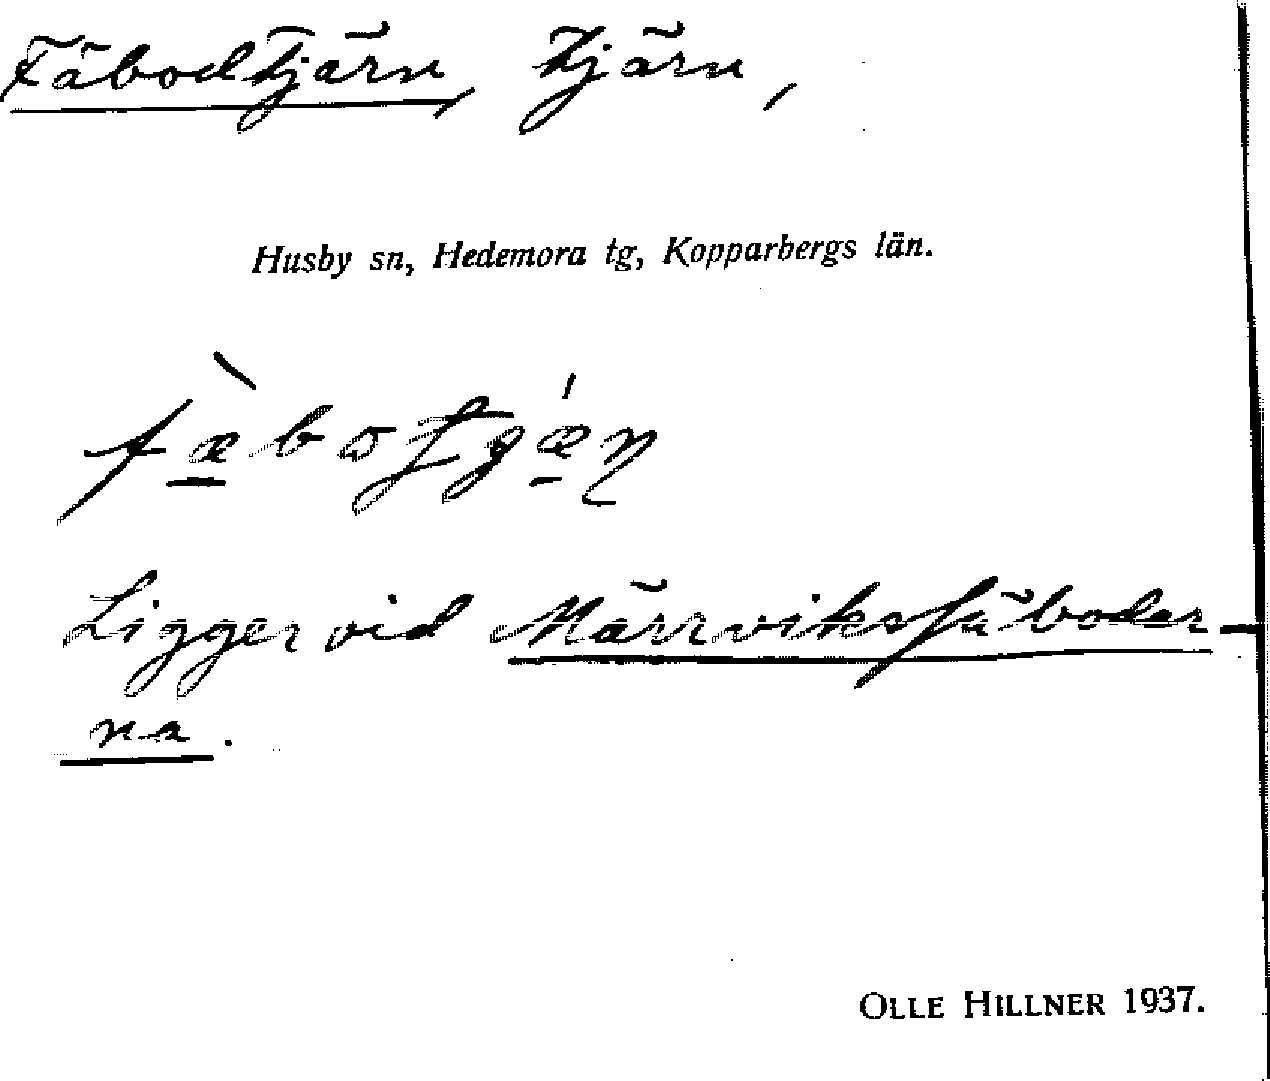 Fäbodtjärn, tjärn,
Husby sn, Hedemora tg, Kopparbergs län.
Ligger vid Märrviksfäboder-
na.
OLLE HILLNER 1937.